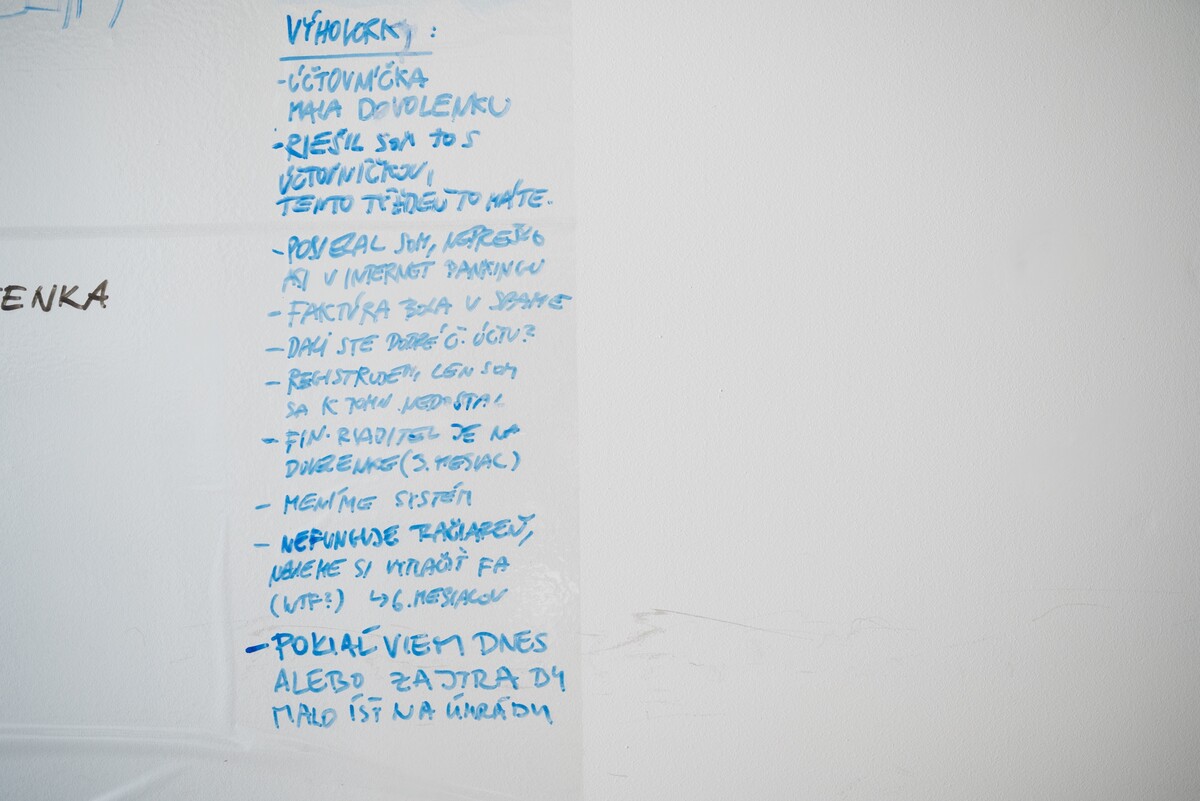 VÝHOVORKY:
- ÚČTOVNÍČKA
MALA DOVOLENKU
- RIEŠIL SOM TO S
ÚČTOVNÍČKOU,
TENTO TÝŽDEŇ TO MÁTE.
- POSIELAL SOM, NEPREŠLO
ASI V INTERNET BANKINGU
- FAKTÚRA BOLA V SPAME
- DALI STE DOBRÉ Č. ÚČTU?
- REGISTRUJEM, LEN SOM
SA K TOMU NEDOSTAL
- FIN. RIADITEL JE NA
DOVOLENKE (3. MESIAC)
- MENÍME SYSTÉM
- NEFUNGUJE TLAČIAREŇ,
NEVIEME SI VYTLAČIŤ FA
(WTF?) ↳ 6. MESIACOV
ENKA
- POKIAĽ VIEM DNES
ALEBO ZAJTRA BY
MALO ÍSŤ NA ÚHRADU